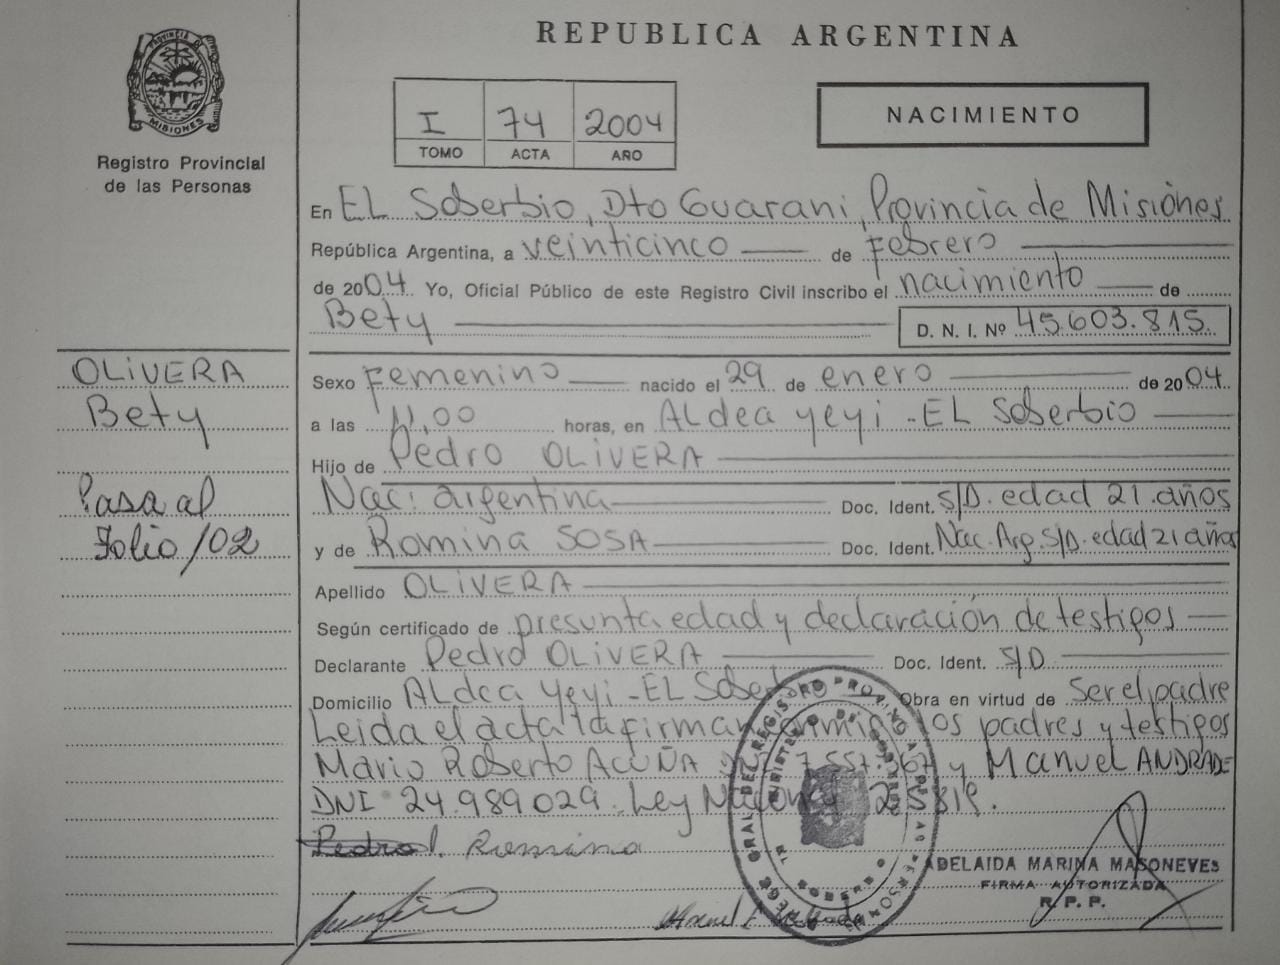 REPUBLICA ARGENTINA
PROVINCIA DE
MISIONES
Registro Provincial
de las Personas
I 74 2004
TOMO ACTA AÑO
NACIMIENTO
En EL Soberbio, Dto Guarani, Provincia de Misiones
República Argentina, a veinticinco de Febrero
de 2004 Yo, Oficial Público de este Registro Civil inscribo el nacimiento de
Bety D. N. I. Nº 45.603.815
OLIVERA
Bety
Pasa al
Folio/02
Sexo Femenino nacido el 29 de enero de 2004
a las 11,00 horas, en Aldea yeyi - EL Soberbio
Hijo de Pedro OLIVERA
Nac: argentina Doc. Ident. S/D. edad 21 años
y de Romina SOSA Doc. Ident. Nac. Arg. S/D. edad 21 años
Apellido OLIVERA
Según certificado de presunta edad y declaración de testigos
Declarante Pedro OLIVERA Doc. Ident. S/D
Domicilio Aldea Yeyi - EL Soberbio Obra en virtud de ser el padre
Leida el acta la firman conmigo los padres y testigos
Mario Roberto ACUÑA 7.557.367 y Manuel ANDRADE
DNI 24.989029. Ley Nacional 25819.
Pedro Romina
ADELAIDA MARINA MASONEVES
FIRMA AUTORIZADA
R. P. P.